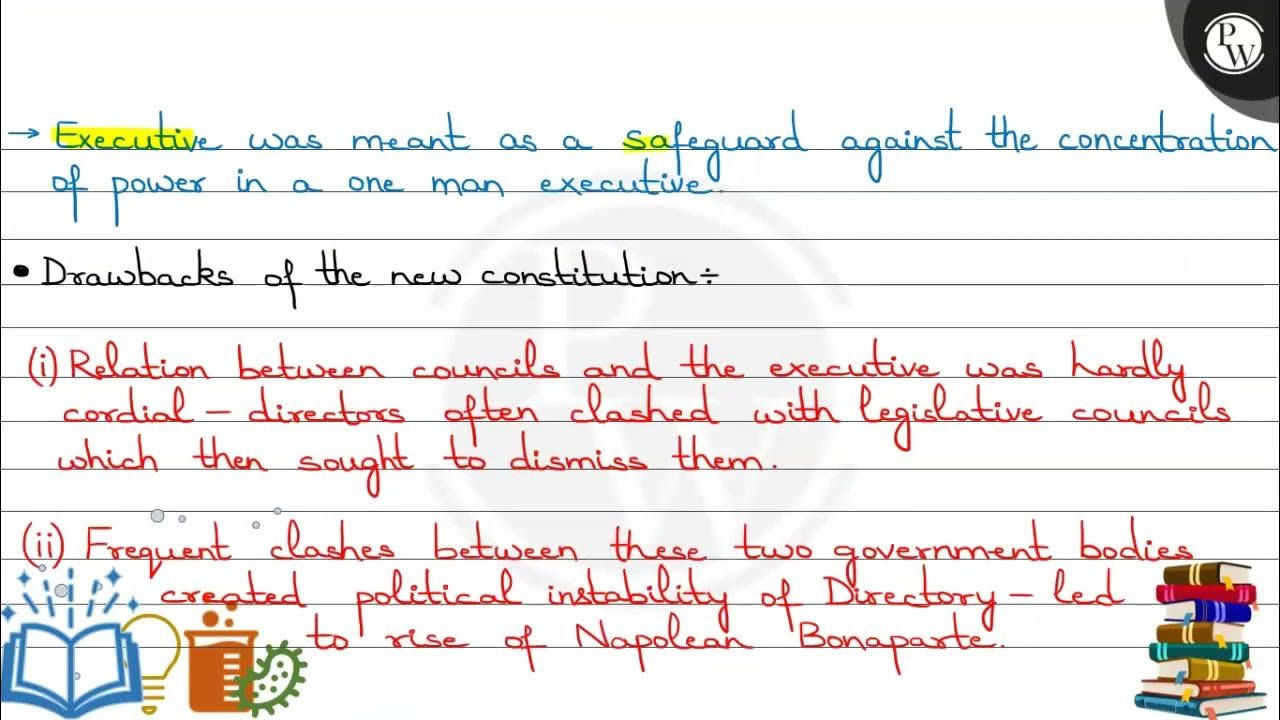 PW
→ Executive was meant as a safeguard against the concentration
of power in a one man executive.
• Drawbacks of the new constitution÷
(i) Relation between councils and the executive was hardly
cordial – directors often clashed with legislative councils
which then sought to dismiss them.
(ii) Frequent clashes between these two government bodies
created political instability of Directory – led
to rise of Napolean Bonaparte.